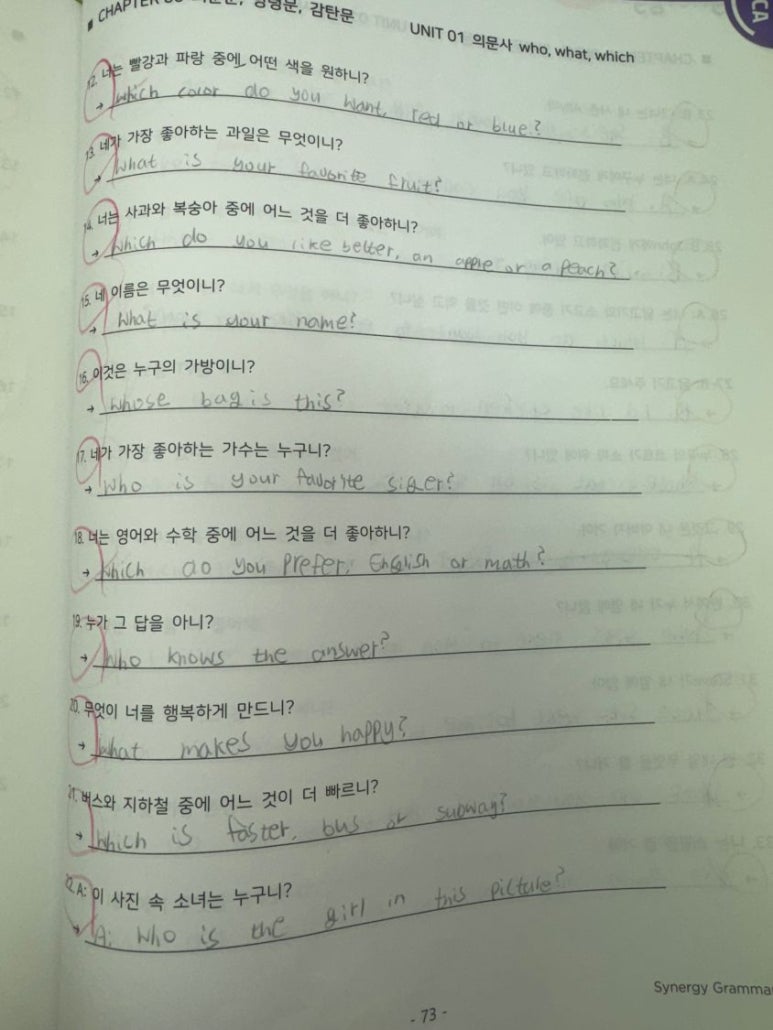 UNIT 01 의문사 who, what, which
CA
12. 너는 빨강과 파랑 중에 어떤 색을 원하니?
→ which color do you want, red or blue?
13. 네가 가장 좋아하는 과일은 무엇이니?
→ What is your favorite fruit?
14. 너는 사과와 복숭아 중에 어느 것을 더 좋아하니?
→ Which do you like better, an apple or a peach?
15. 네 이름은 무엇이니?
→ What is your name?
16. 이것은 누구의 가방이니?
→ Whose bag is this?
17. 네가 가장 좋아하는 가수는 누구니?
→ Who is your favorite siger?
18. 너는 영어와 수학 중에 어느 것을 더 좋아하니?
→ Which do you Prefer, English or math?
19. 누가 그 답을 아니?
→ Who knows the answer?
20. 무엇이 너를 행복하게 만드니?
→ What makes you happy?
21. 버스와 지하철 중에 어느 것이 더 빠르니?
→ Which is faster, bus or subway?
22. A: 이 사진 속 소녀는 누구니?
→ A: Who is the girl in this picture?
Synergy Gramma
- 73 -